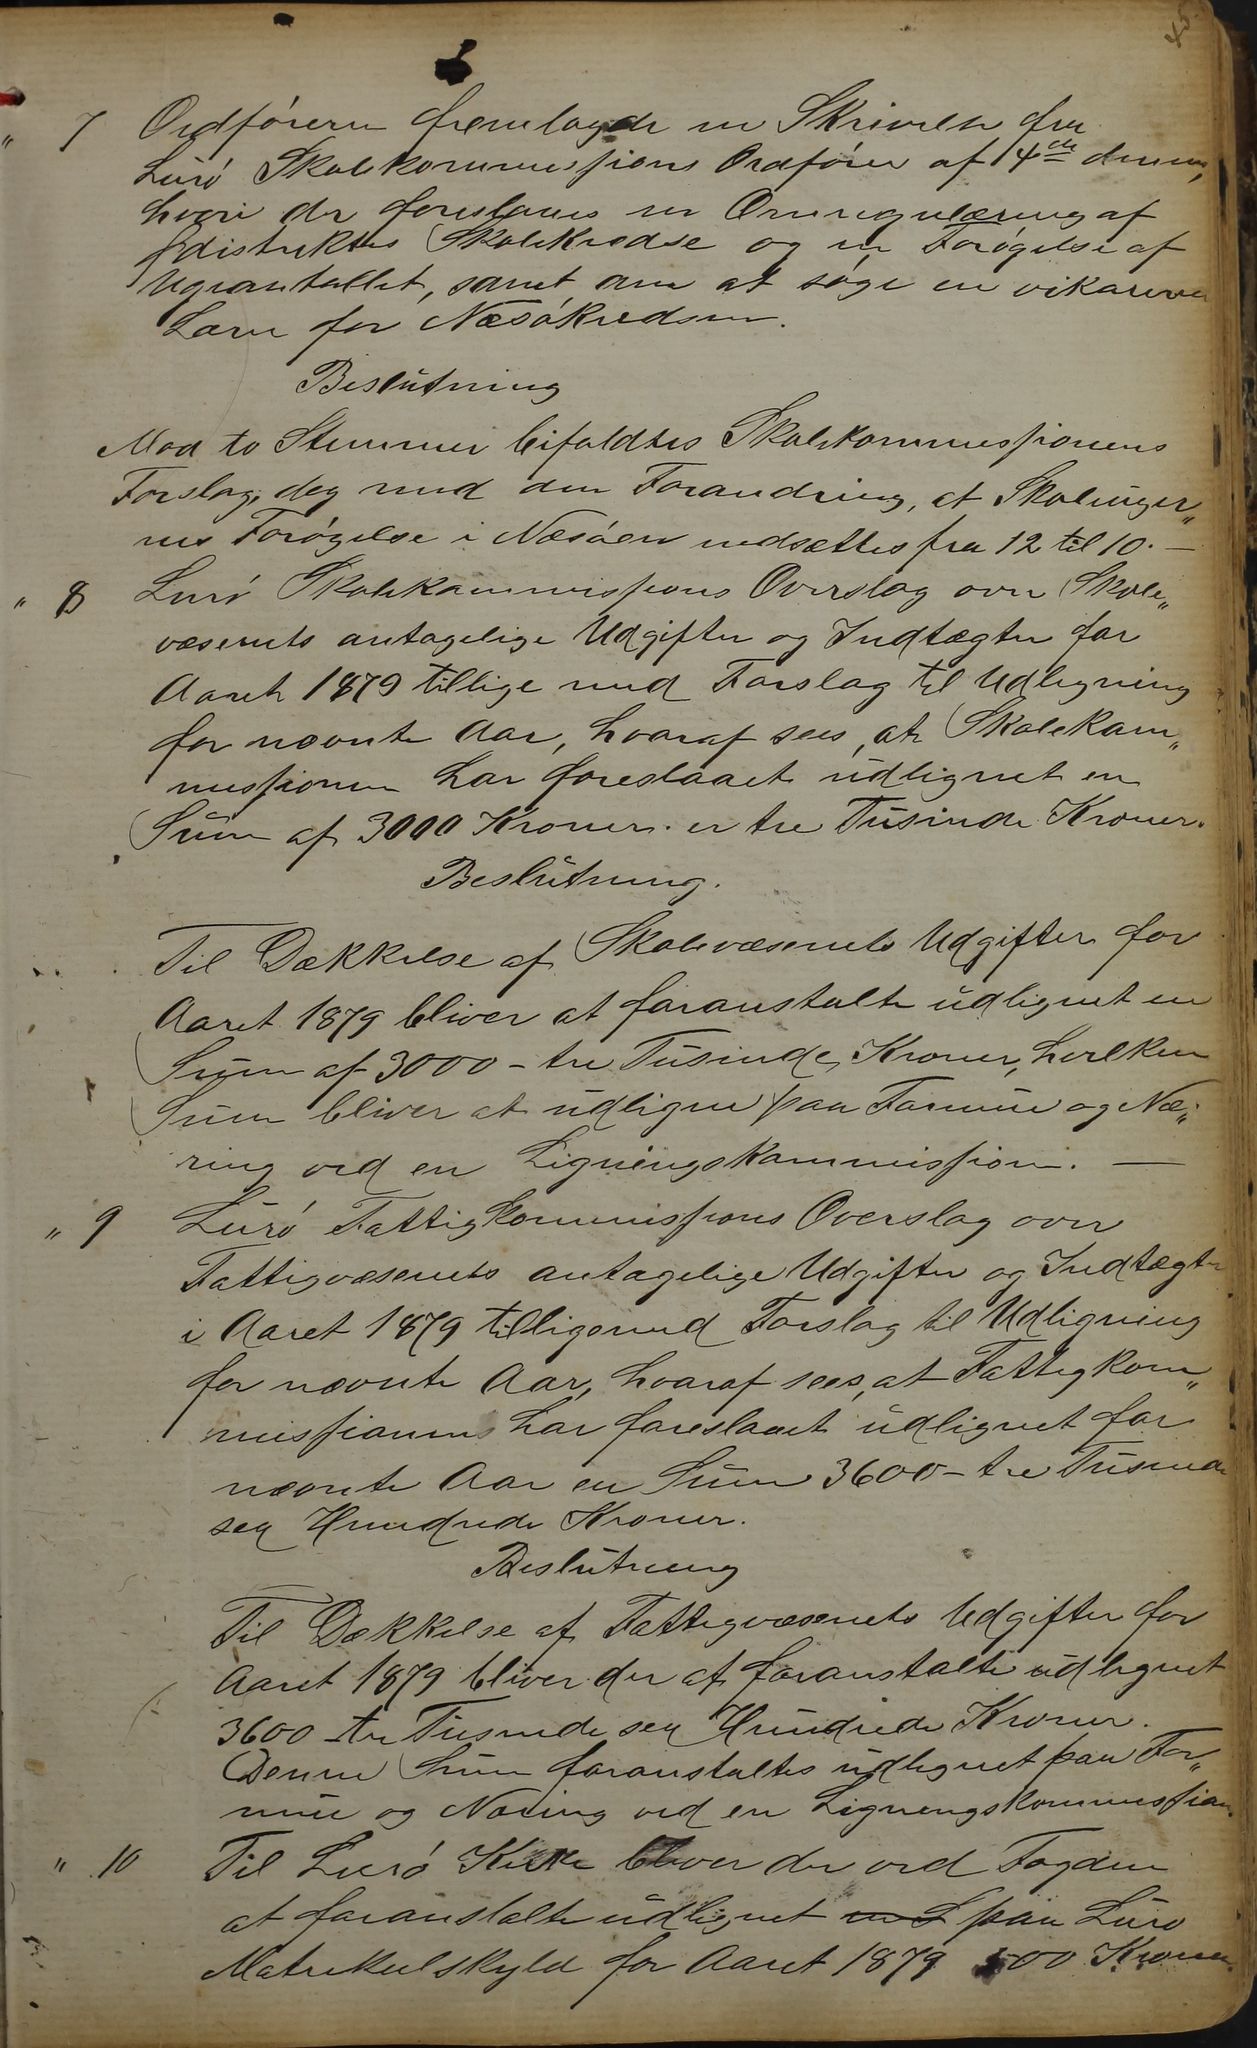 45
" 7 Ordføreren fremlagde en Skrivelse fra
Lurø Skolekommissions Ordfører af 14de dennes,
hvori der foreslaaes en Omregulæring af
Distriktets Skolekredse og en Forøgelse af
Ugeantallet, samt om at søge en vikarerende
Lærer for Næsøkredsen.
Beslutning
Mod to Stemmer bifaldtes Skolekommissionens
Forslag, dog med den Forandring, at Skoleuger„
nes Forøgelse i Næsøen nedsættes fra 12 til 10. —
" 8 Lurø Skolekommissions Overslag over Skole„
væsenets antagelige Udgifter og Indtægter for
Aaret 1879 tillige med Forslag til Udligning
for nævnte Aar, hvoraf sees, at Skolekom„
missionen har foreslaaet udlignet en
Sum af 3000 Kroner. er tre Tusinde Kroner.
Beslutning.
Til Dækkelse af Skolevæsenets Udgifter for
Aaret 1879 bliver at foranstalte udlignet en
Sum af 3000 – tre Tusinde, Kroner, hvilken
Sum bliver at udligne paa Formue og Næ„
ring ved en Ligningskommission. —
" 9 Lurø Fattigkommissions Overslag over
Fattigvæsenets antagelige Udgifter og Indtægter
i Aaret 1879 tilligemed Forslag til Udligning
for nævnte Aar, hvoraf sees, at Fattigkom„
missionen har foreslaaet udlignet for
nævnte Aar en Sum 3600 – tre Tusinde
sex Hundrede Kroner.
Beslutning
Til Dækkelse af Fattigvæsenets Udgifter for
Aaret 1879 bliver der at foranstalte udlignet
3600 – tre Tusinde sex Hundrede Kroner.
Denne Sum foranstaltes udlignet paa For„
mue og Næring ved en Ligningskommission.
" 10 Til Lurø Kirke bliver der ved Fogden
at foranstalte udlignet paa Lurø
Matrikulskyld for Aaret 1879 500 Kroner.